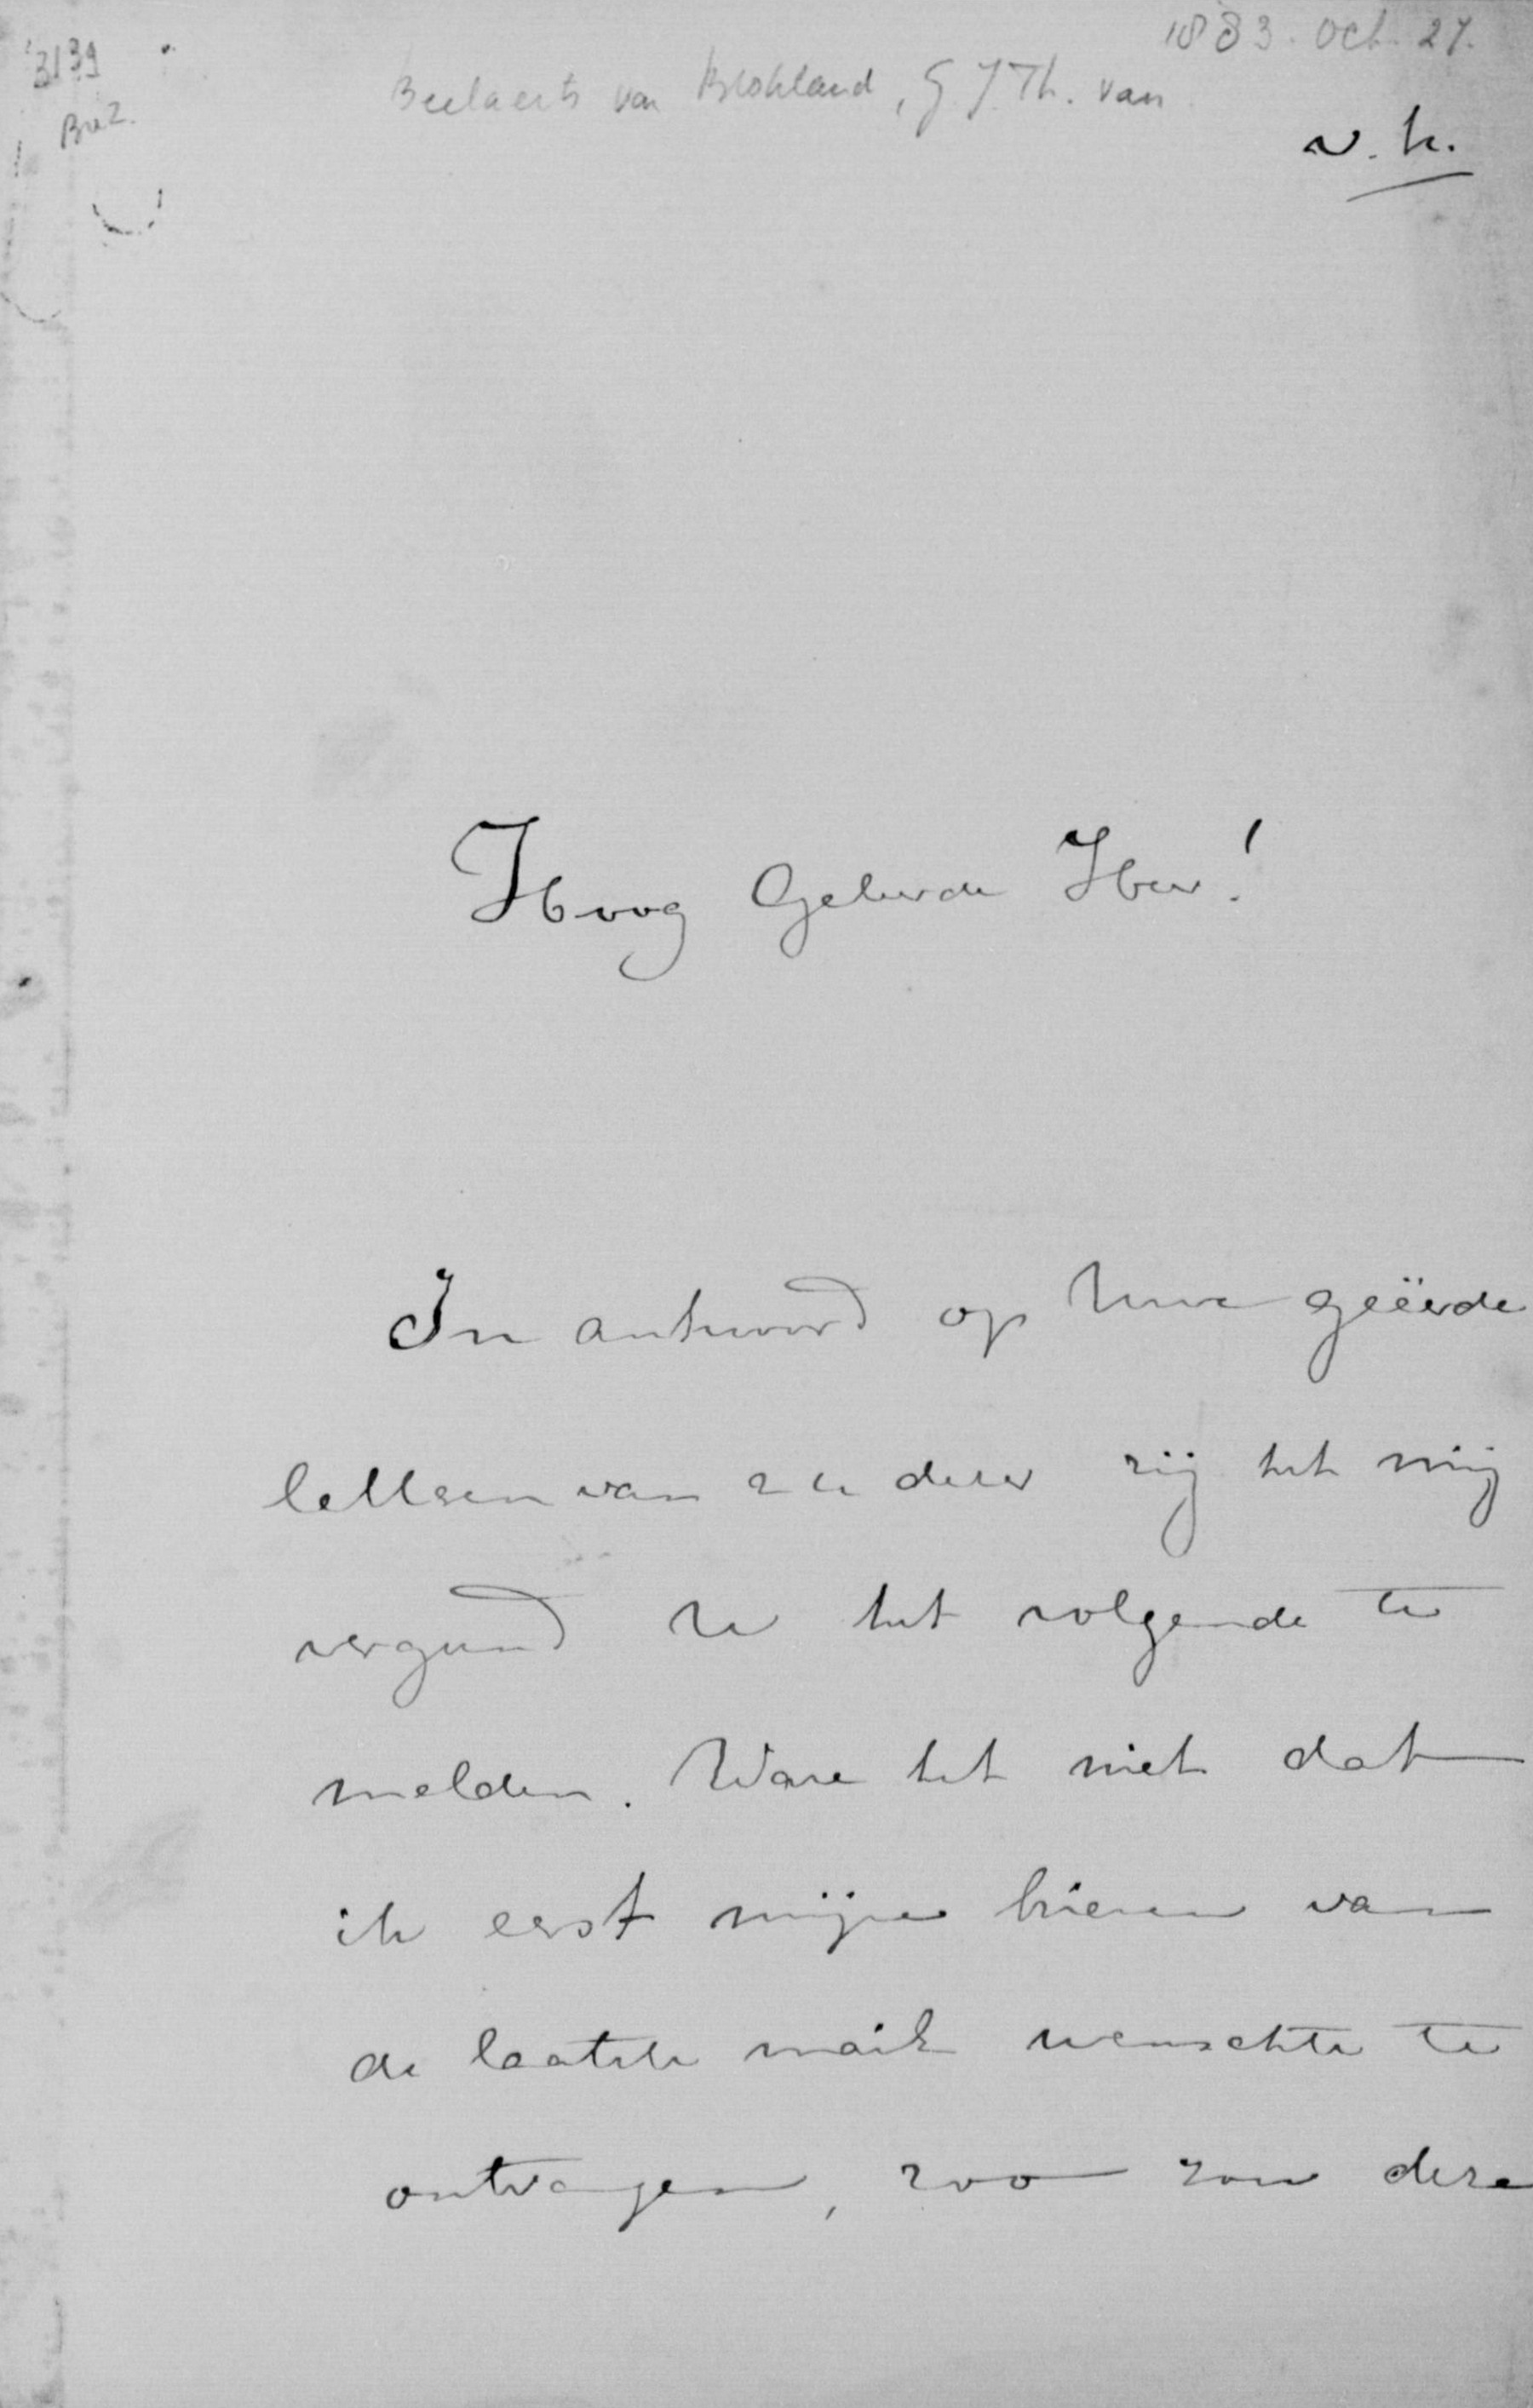 1883. Oct. 27.
3139
Beelaerts van Blokland, G.J.Th. van
Bu2.
v. k.
Hoog Geleerde Heer!
In antwoord op Uwe geëerde
letteren van 24 dezer zij het mij
vergund U het volgende te
melden. Ware het niet dat
ik eerst mijne brieven van
de laatste mail wenschte te
ontvangen, zoo zou deze